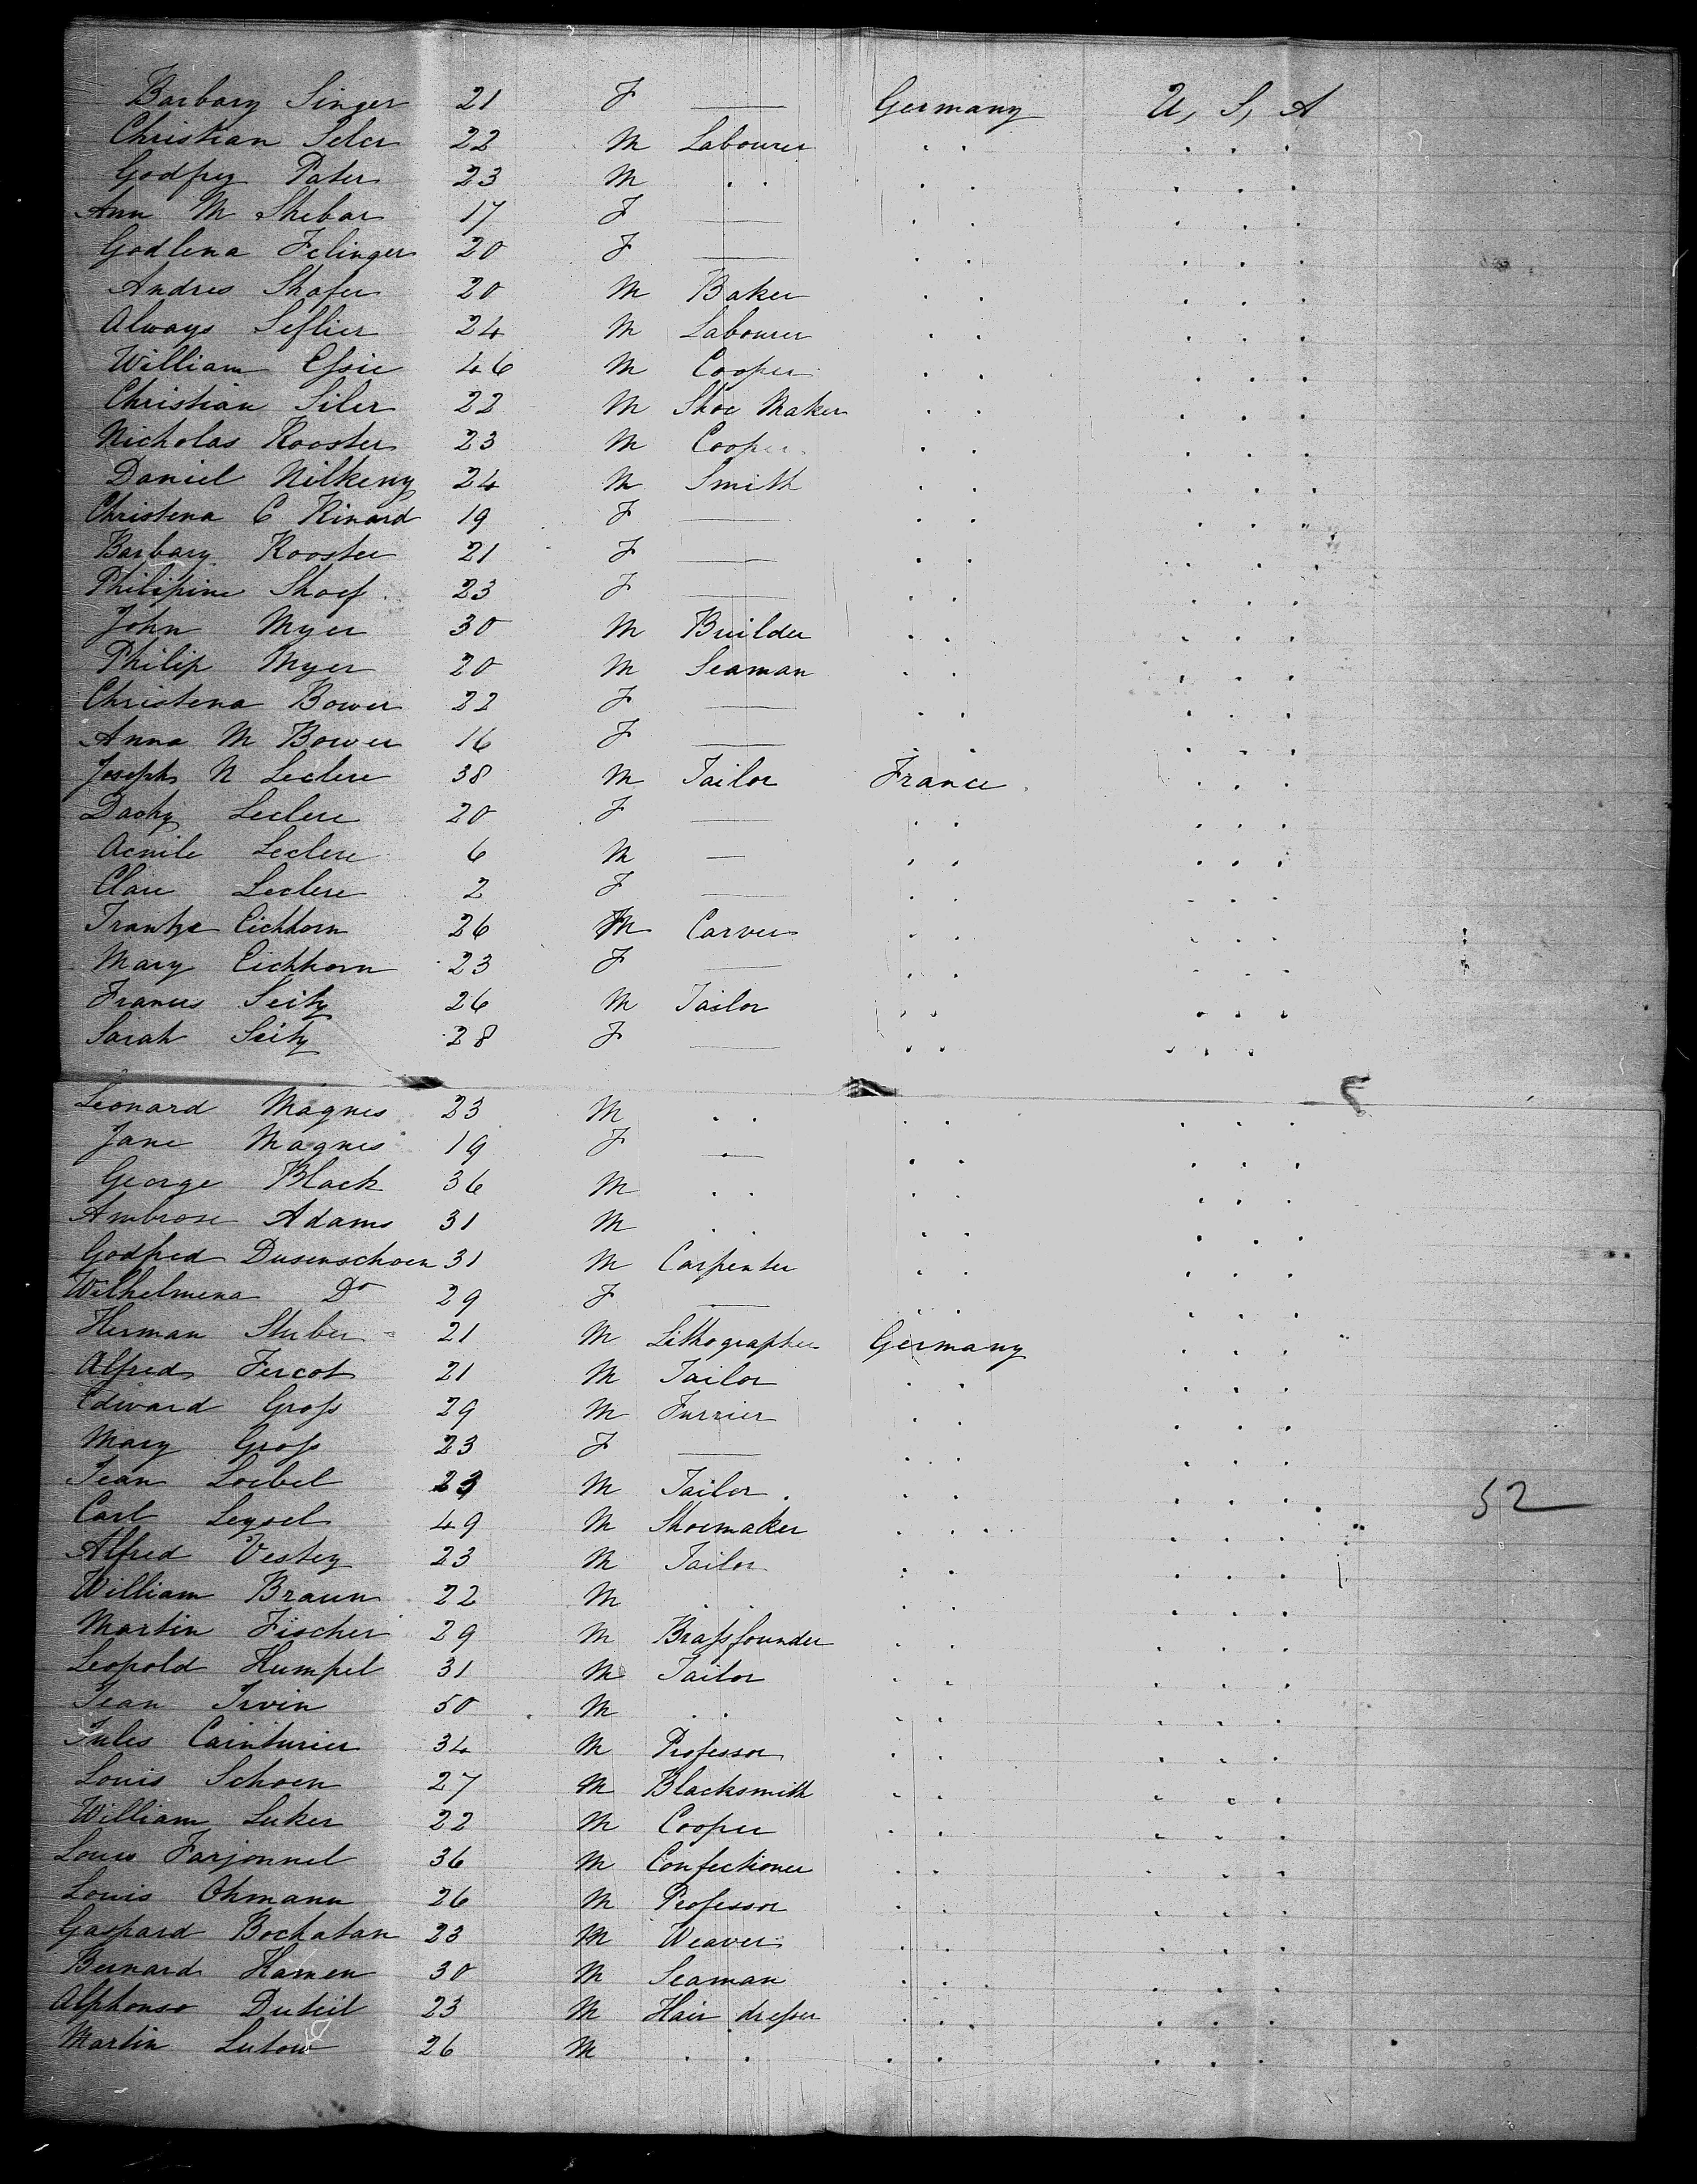 Barbary Singer 21 F — Germany U, S, A
Christian Seler 22 M Labourer . . . . .
Godfrey Pater 23 M . . . . . . .
Ann M Shebar 17 F — . . . . .
Godlena Felinger 20 F — . . . . .
Andres Shafer 20 M Baker . . . . .
Always Seflier 24 M Labourer . . . . .
William Essie 46 M Cooper . . . . .
Christian Siler 22 M Shoe Maker . . . . .
Nicholas Rooster 23 M Cooper . . . . .
Daniel Nilkeny 24 M Smith . . . . .
Christena C Rinard 19 F — . . . . .
Barbary Rooster 21 F — . . . . .
Philipine Shoef 23 F — . . . . .
John Myer 30 M Builder . . . . .
Philip Myer 20 M Seaman . . . . .
Christena Bower 22 F — . . . . .
Anna M Bower 16 F — . . . . .
Joseph N Leclere 38 M Tailor France . . .
Leclere 20 F — . . . . .
Acmile Leclere 6 M — . . . . .
Clare Leclere 2 F — . . . . .
Frantze Eichhorn 26 M Carver . . . . .
Mary Eichhorn 23 F — . . . . .
Francis Seitz 26 M Tailor . . . . .
Sarah Seitz 28 F — . . . . .
Leonard Magnes 23 M . . . . . . .
Jane Magnes 19 F — . . . . .
George Black 36 M . . . . . . .
Ambrose Adams 31 M . . . . . . .
Godfred Dusenschoen 31 M Carpenter . . . . .
Wilhelmena Do 29 F — . . . . .
Herman Stuber 21 M Lithographer Germany . . .
Alfred Fercot 21 M Tailor . . . . .
Edward Gross 29 M Furrier . . . . .
Mary Gross 23 F — . . . . .
Jean Loebel 23 M Tailor . . . . .
52
Carl Leysel 49 M Shoemaker . . . . .
Alfred Vestey 23 M Tailor . . . . .
William Braun 22 M . . . . . . .
Martin Fischer 29 M Brassfounder . . . . .
Leopold Humpel 31 M Tailor . . . . .
Jean Irvin 50 M . . . . . . .
Jules Cainturier 34 M Professor . . . . .
Louis Schoen 27 M Blacksmith . . . . .
William Luker 22 M Cooper . . . . .
Louis Farjonnel 36 M Confectioner . . . . .
Louis Ohmann 26 M Professor . . . . .
Gaspard Bochatan 23 M Weaver . . . . .
Bernard Hamen 30 M Seaman . . . . .
Alphonso Duteil 23 M Hair dresser . . . . .
Martin Lutow 26 M . . . . . . .